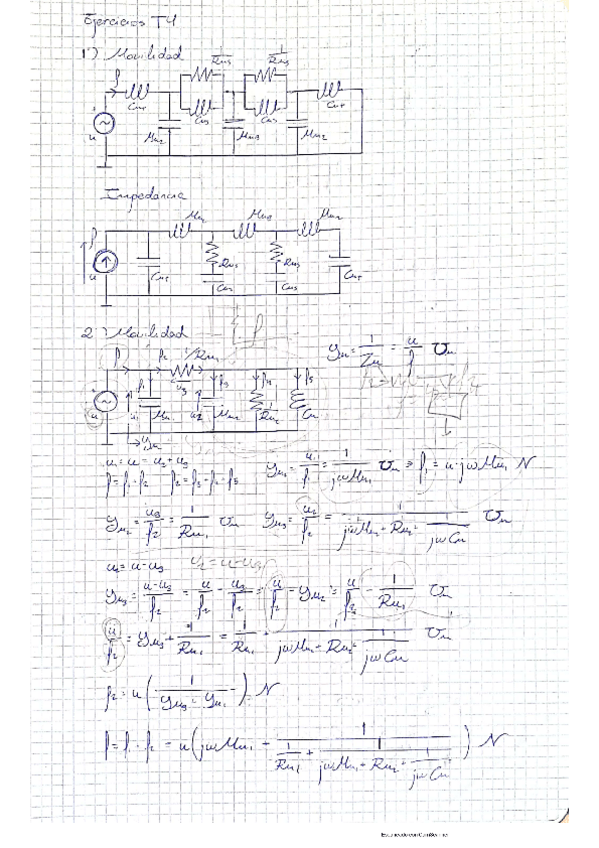 Ejercicios T4
1º) Movilidad
f
1/Rm3
1/Rm3
Cm
Cm3
Cm3
Cm
u
Mm2
Mm3
Mm2
Impedancia
Mm2
Mm3
Mm2
f
u
Rm3
Rm3
Cm3
Cm3
2º) Movilidad
f
f2
1/Rm1
f1
u3
f3
f4
f5
u
Mm1
u2
Mm2
1/Rm2
Cm
Ym = 1/Zm = u/f ℧m
u1 = u = u2 + u3
f = f1 + f2 f2 = f3 + f4 + f5
Ym1 = u1/f1 = 1/(jωMm1) ℧m ⇒ f1 = u·jωMm1 N
Ym2 = u3/f2 = 1/Rm1 ℧m
Ym3 = u2/f2 = 1/(jωMm2 + Rm2 + 1/(jωCm)) ℧m
u2 = u - u3
Ym3 = (u-u3)/f2 = u/f2 - u3/f2 = u/f2 - Ym2 = u/f2 - 1/Rm1 ℧m
u/f2 = Ym3 + 1/Rm1 = 1/Rm1 + 1/(jωMm2 + Rm2 + 1/(jωCm)) ℧m
f2 = u(1/(Ym3 + Ym2)) N
f = f1 + f2 = u(jωMm1 + 1/(1/Rm1 + 1/(jωMm2 + Rm2 + 1/(jωCm)))) N
Escaneado con CamScanner